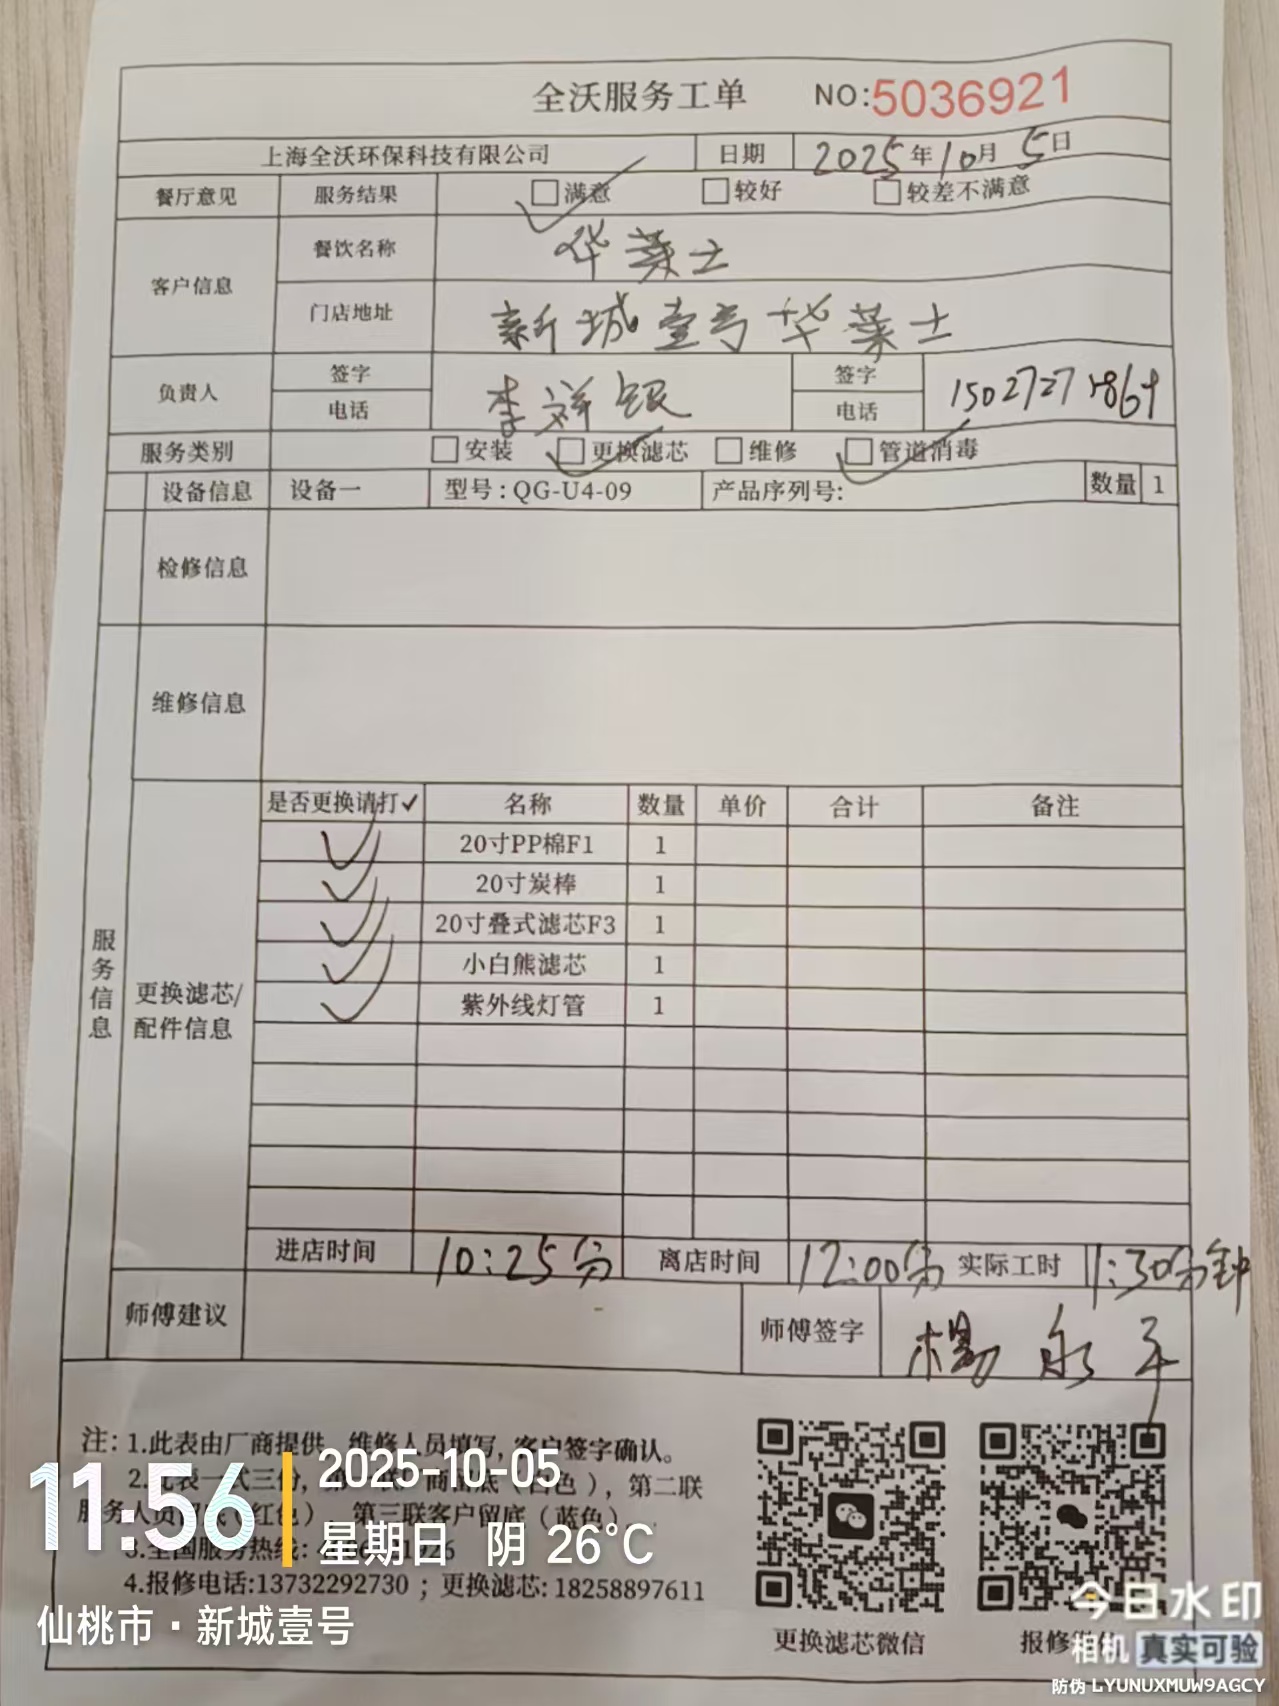 全沃服务工单 NO:5036921
上海全沃环保科技有限公司 日期 2025年10月5日
餐厅意见 服务结果 ☐满意 ☐较好 ☐较差不满意
客户信息 餐饮名称 华莱士
门店地址 新城壹号华莱士
负责人 签字 电话 李祥银 签字 电话
服务类别 ☐安装 ☐更换滤芯 ☐维修 ☐管道消毒
设备信息 设备一 型号:QG-U4-09 产品序列号: 数量 1
检修信息
维修信息
服务信息
更换滤芯/配件信息
是否更换请打✓ 名称 数量 单价 合计 备注
✓ 20寸PP棉F1 1
✓ 20寸炭棒 1
✓ 20寸叠式滤芯F3 1
✓ 小白熊滤芯 1
✓ 紫外线灯管 1
进店时间 10:25分 离店时间 12:00分 实际工时 1:30分钟
师傅建议 师傅签字 杨永平
注: 1.此表由厂商提供，维修人员填写，客户签字确认。
2.此表一式三份，商留底(白色)，第二联
服务人员留底(红色)，第三联客户留底(蓝色)
3.全国服务热线:
4.报修电话:13732292730；更换滤芯:18258897611
更换滤芯微信 报修微信
11:56 2025-10-05
星期日 阴 26°C
仙桃市·新城壹号
今日水印
相机 真实可验
防伪 LYUNUXMUW9AGCY